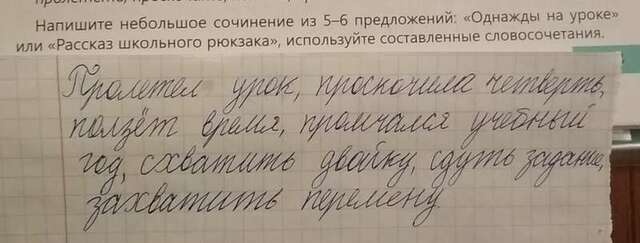 Напишите небольшое сочинение из 5–6 предложений: «Однажды на уроке»
или «Рассказ школьного рюкзака», используйте составленные словосочетания.
Пролетел урок, проскочила четверть,
ползёт время, промчался учебный
год, схватить двойку, сдуть задание,
захватить перемену